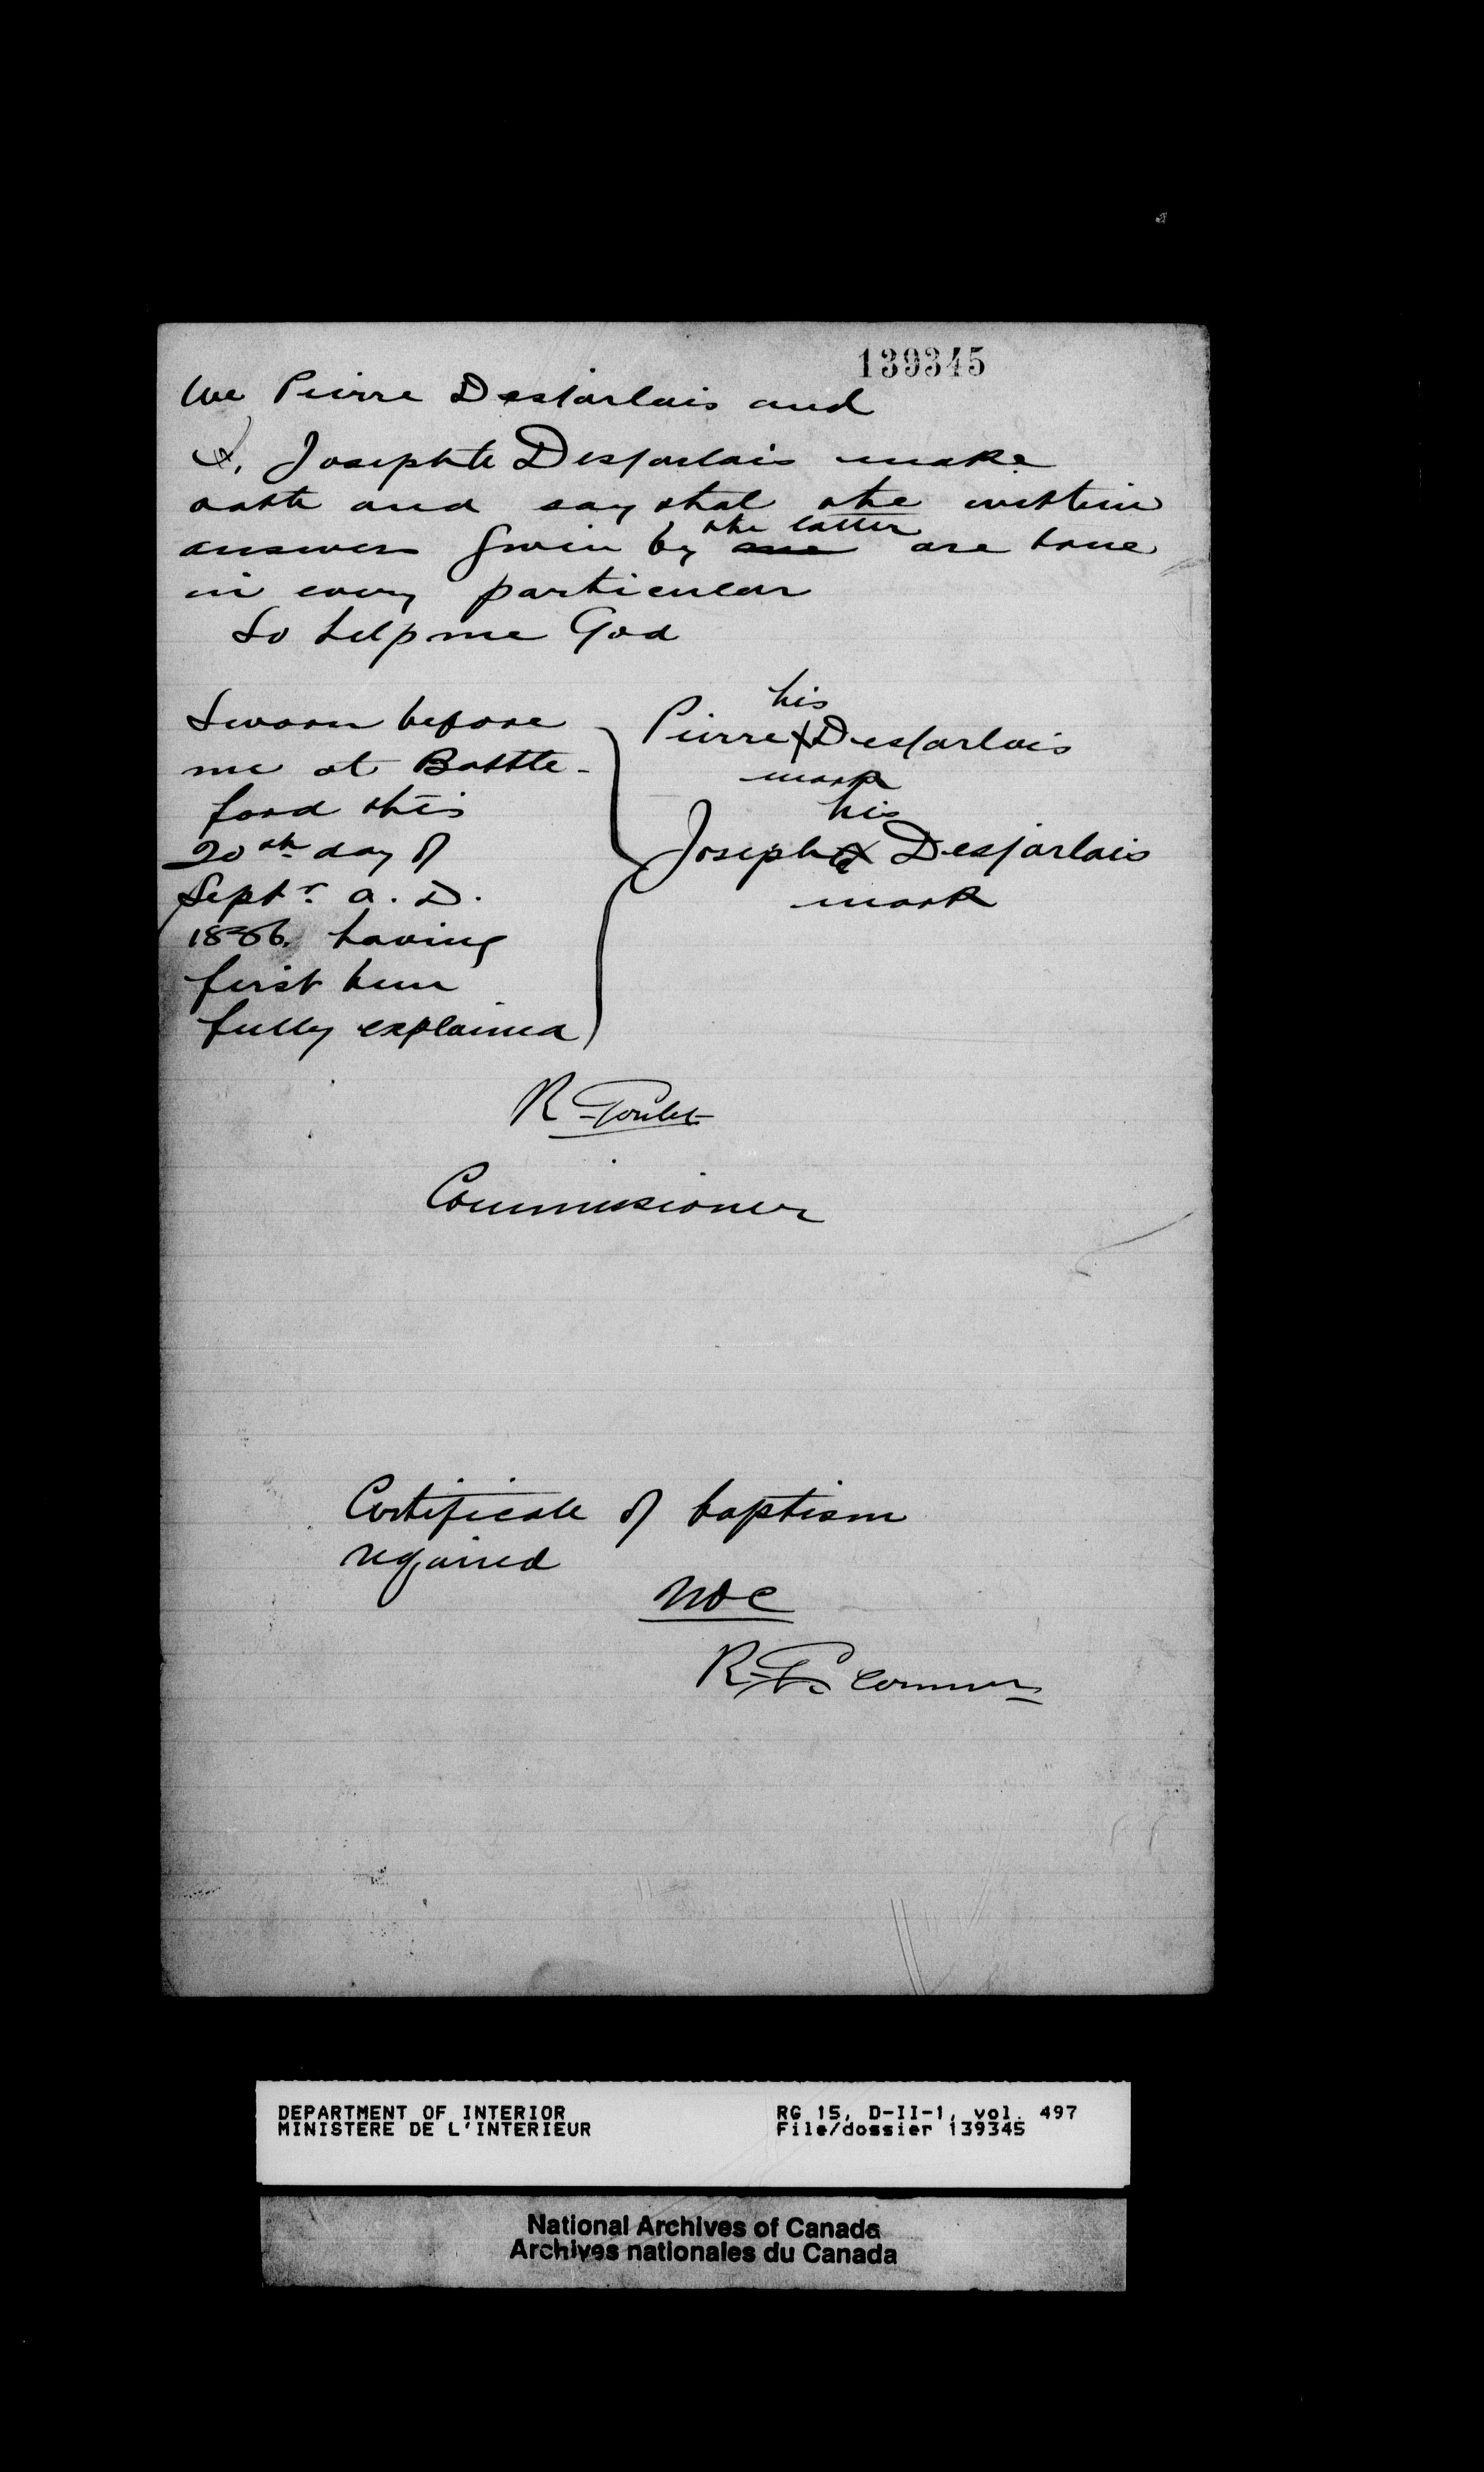 139345
We Pierre Desjarlais and
I, Josephte Desjarlais make
oath and say that the within
the latter
answers given by me are true
in every particular
So help me God
Sworn before
me at Battle-
ford this
20th day of
Septr. A. D.
1886. having
first been
fully explained
his
Pierre X Desjarlais
mark
his
Josephte X Desjarlais
mark
R Goulet
Commissioner
Certificate of baptism
required
R. G. Commr
DEPARTMENT OF INTERIOR
MINISTERE DE L'INTERIEUR
RG 15, D-II-1, vol. 497
File/dossier 139345
National Archives of Canada
Archives nationales du Canada